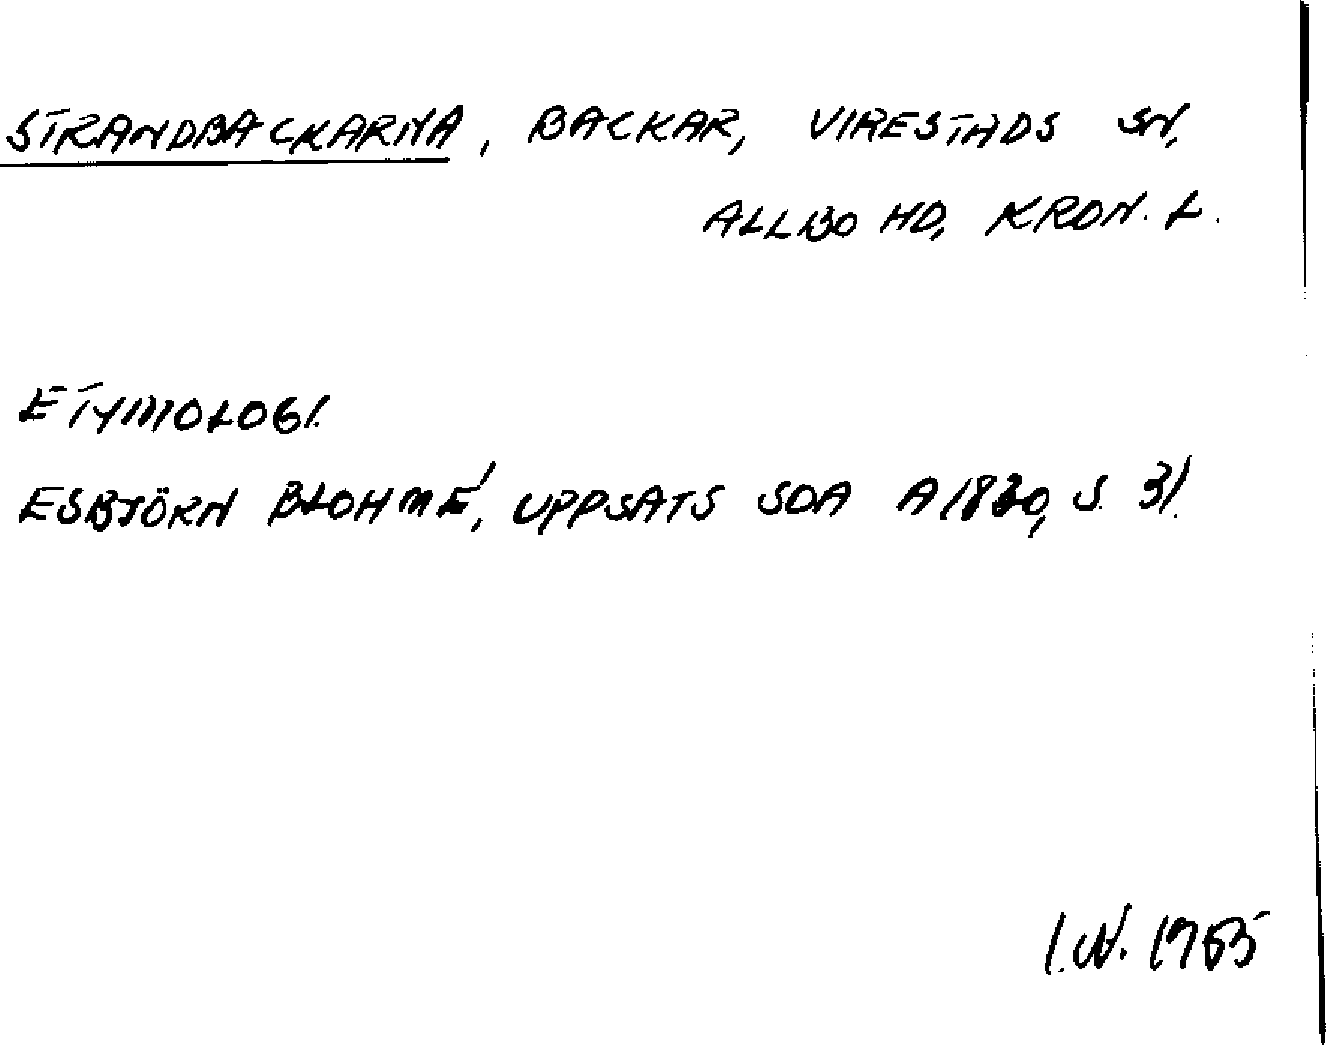 STRANDBACKARNA, BACKAR, VIRESTADS SN,
ALLBO HD, KRON. L.
ETYMOLOGI.
ESBJÖRN BLOHMÉ, UPPSATS SOA A1830, S. 31.
I.N. 1985